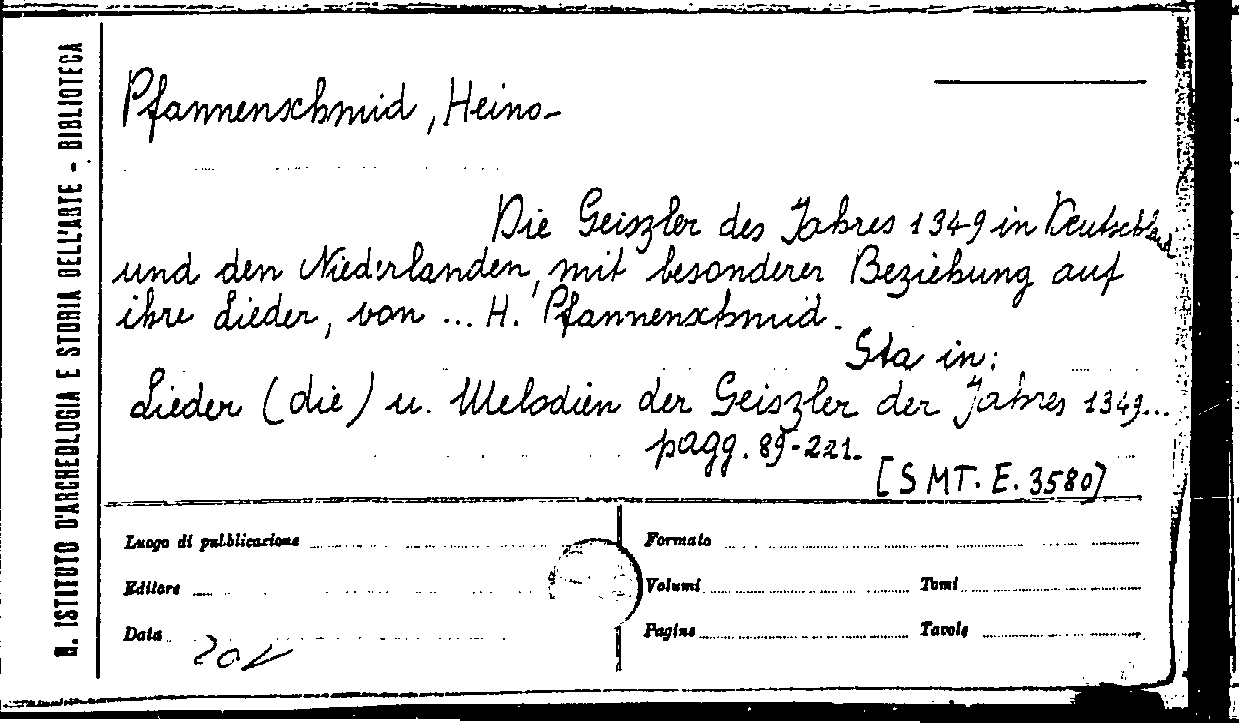 R. ISTITUTO D'ARCHEOLOGIA E STORIA DELL'ARTE - BIBLIOTECA
Pfannenschmid, Heino-
Die Geiszler des Jahres 1349 in Deutschland
und den Niederlanden, mit besonderer Beziehung auf
ihre Lieder, von ... H. Pfannenschmid.
Sta in:
Lieder (die) u. Melodien der Geiszler der Jahres 1349...
pagg. 89-221.
[SMT. E. 3580]
Luogo di pubblicazione
Formato
Editore
Volumi Tomi
Data
Pagine Tavole